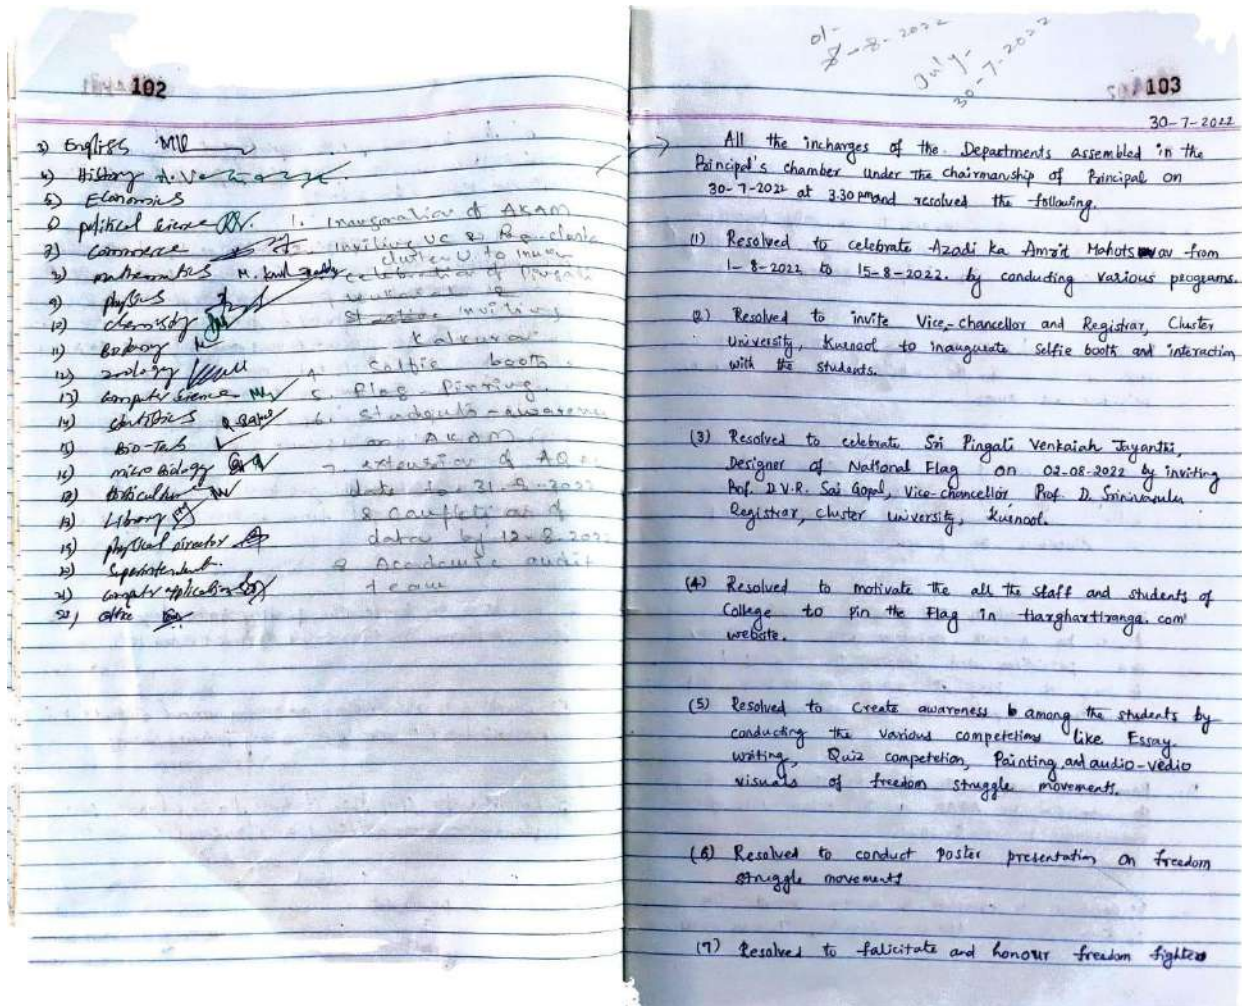 102
3) English
4) History
5) Economics
political Science
7) Commerce
mathematics M.
9) physics
10) chemistry
11) Botany
12) zoology
13) computer science
14) statistics
15) Bio-Tech
16) micro Biology
Horticulture
Library
19) physical director
20) Superintendent.
21) computer application
22) office
1. Inauguration of AKAM
inviting VC &
cluster U. to
celebration of Pingali
inviting
4. Selfie booth.
5. Flag Pinning.
6. Students - awareness
on AKAM
7. extension of AQ
date to 31-8-2022
& completion of
data by 12-8-2022
8 Academic audit
team
8-8-2022
July-
30-7-2022
103
30-7-2022
All the incharges of the Departments assembled in the
Principal's chamber under the chairmanship of Principal on
30-7-2022 at 3.30 pm and resolved the following.
(1) Resolved to celebrate Azadi ka Amrit Mahotsav from
1-8-2022 to 15-8-2022. by conducting various programs.
(2) Resolved to invite Vice-Chancellor and Registrar, Cluster
University, Kurnool to inaugurate selfie booth and interaction
with the students.
(3) Resolved to celebrate Sri Pingali Venkaiah Jayanthi,
Designer of National Flag on 02-08-2022 by inviting
Prof. D.V.R. Sai Gopal, Vice-chancellor Prof. D. Srinivasulu
Registrar, cluster university, Kurnool.
(4) Resolved to motivate the all the staff and students of
College to Pin the Flag in Harghartiranga.com'
website.
(5) Resolved to Create awareness among the students by
conducting the various competetions like Essay
writing, Quiz competetion, Painting and audio-vedio
visuals of freedom struggle movements.
(6) Resolved to conduct Poster presentation on freedom
struggle movements
(7) Resolved to falicitate and honour freedom fighters